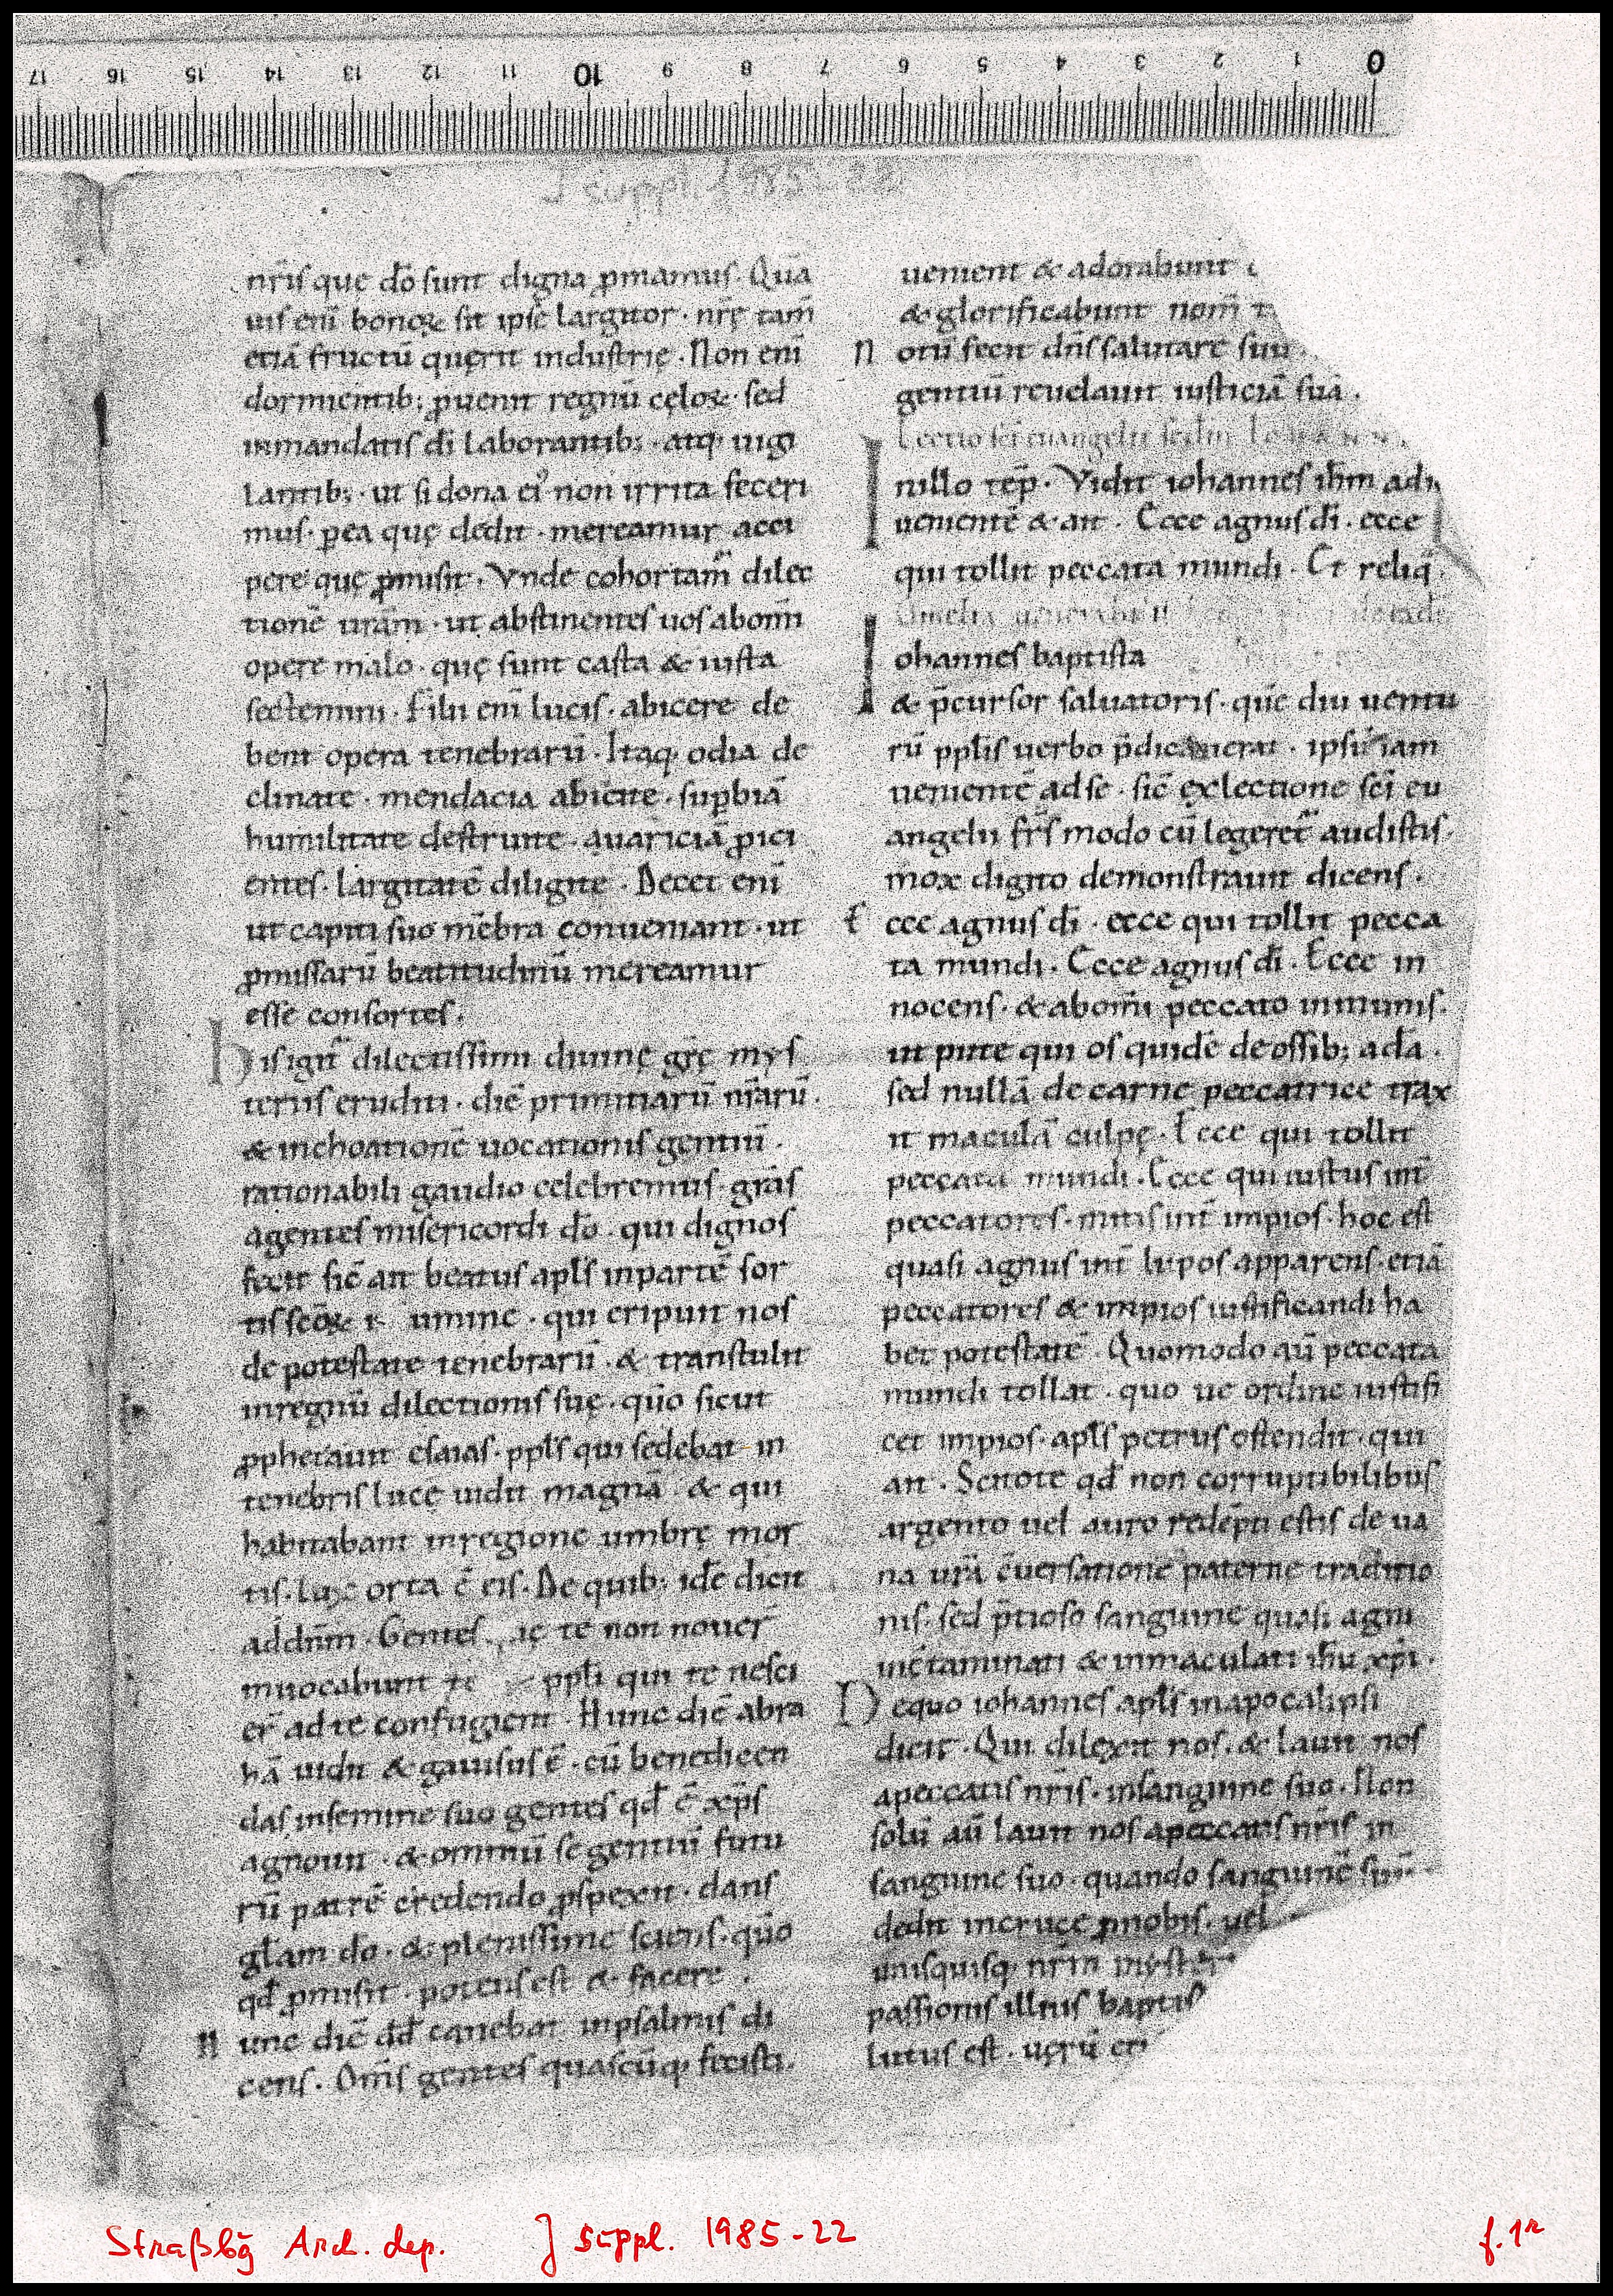 17 16 15 14 13 12 11 10 9 8 7 6 5 4 3 2 1 0
J suppl. 1985-22
nr̄is que dō sunt digna ꝓmamus. Quā
uis eni bonoꝝ sit ipse largitor. nrę tam̄
etiā fructū querit industrię. Non eni
dormientib; ꝓuenit regnū celoꝝ. sed
inmandatis di laborantib;. atq; uigi
lantib;. ut si dona ei᾽ non irrita feceri
mus. ꝑea quę dedit. mereamur acci
pere quę ꝓmisit. Vnde cohortam̄ dilec
tionē urām. ut abstinentes uos abom̄i
opere malo. quę sunt casta & iusta
sectemini. Filii eni lucis. abicere de
bent opera tenebrarū. Itaq; odia de
clinate. mendacia abicite. suꝑbiā
humilitate destruite. auariciā ꝓici
entes. largitatē diligite. Decet eni
ut capiti suo mēbra conueniant. ut
ꝓmissarū beatitudinū mereamur
esse consortes.
H is igit᾽ dilectissimi diuinę grę mys
teriis eruditi. diē primitiarū nr̄arū.
& inchoationē uocationis gentiū.
rationabili gaudio celebremus. grās
agentes misericordi dō. qui dignos
fecit sic̄ ait beatus apls inpartē sor
tis scōꝝ umine. qui eripuit nos
de potestate tenebrarū. & transtulit
inregnū dilectionis suę. quō sicut
ꝓphetauit esaias. ppls qui sedebat in
tenebris lucē uidit magnā. & qui
habitabant inregione umbrę mor
tis. lux orta ē eis. De quib; idē dicit
addnm. Gentes quę te non nouer̄
inuocabunt te ppli qui te nesci
er̄ ad te confugient. Hunc diē abra
hā uidit & gauisus ē. cū benedicen
das insemine suo gentes qd̄ ē xp̄s
agnouit. & omniū se gentiū futu
rū patrē credendo ꝓspexit. dans
glam dō. & plenissime sciens. quō
qd̄ ꝓmisit. potens est & facere.
H unc diē dd̄ canebat inpsalmis di
cens. Om̄s gentes quascūq; fecisti.
uenient & adorabunt
& glorificabunt nom̄ t
N otū fecit dn̄s salutare suū.
gentiū reuelauit iusticiā suā.
Lectio sci euangelii scdm Iohann
I nillo tēp. Vidit iohannes ihm ad
uenientē & ait. Ecce agnus di. ecce
qui tollit peccata mundi. Et reliq̄.
Omelia uenerabil
I ohannes baptista
& p̄cursor saluatoris. quē diu uentu
rū pplis uerbo p̄dicauerat. ipsū iam
uenientē adse. sic̄ exlectione sci eu
angelii frs̄ modo cū legeret᾽ audistis.
mox digito demonstrauit dicens.
E cce agnus di. ecce qui tollit pecca
ta mundi. Ecce agnus di. Ecce in
nocens. & abom̄i peccato inmunis.
ut pute qui os quidē deossib; adā.
sed nullā de carne peccatrice trax
it maculā culpę. Ecce qui tollit
peccata mundi. Ecce qui iustus int̄
peccatores. mitis int̄ impios. hoc est
quasi agnus int̄ lupos apparens. etiā
peccatores & impios iustificandi ha
bet potestatē. Quomodo aū peccata
mundi tollat. quo ue ordine iustifi
cet impios. apls petrus ostendit. qui
ait. Scitote qd̄ non corruptibilibus
argento uel auro redēpti estis de ua
na urā c̄uersatione paterne traditio
nis. sed p̄tioso sanguine quasi agni
inc̄taminati & inmaculati ihu xp̄i.
D equo iohannes apls inapocalipsi
dicit. Qui dilexit nos. & lauit nos
apeccatis nr̄is. insanguine suo. Non
solū aū lauit nos apeccatis nr̄is in
sanguine suo. quando sanguinē suū
dedit incruce ꝓnobis. uel
unisquisq; nr̄m myster
passionis illius baptis
lutus est. uerū eti
Straßbg Arch. dep. J suppl. 1985-22 f. 1r